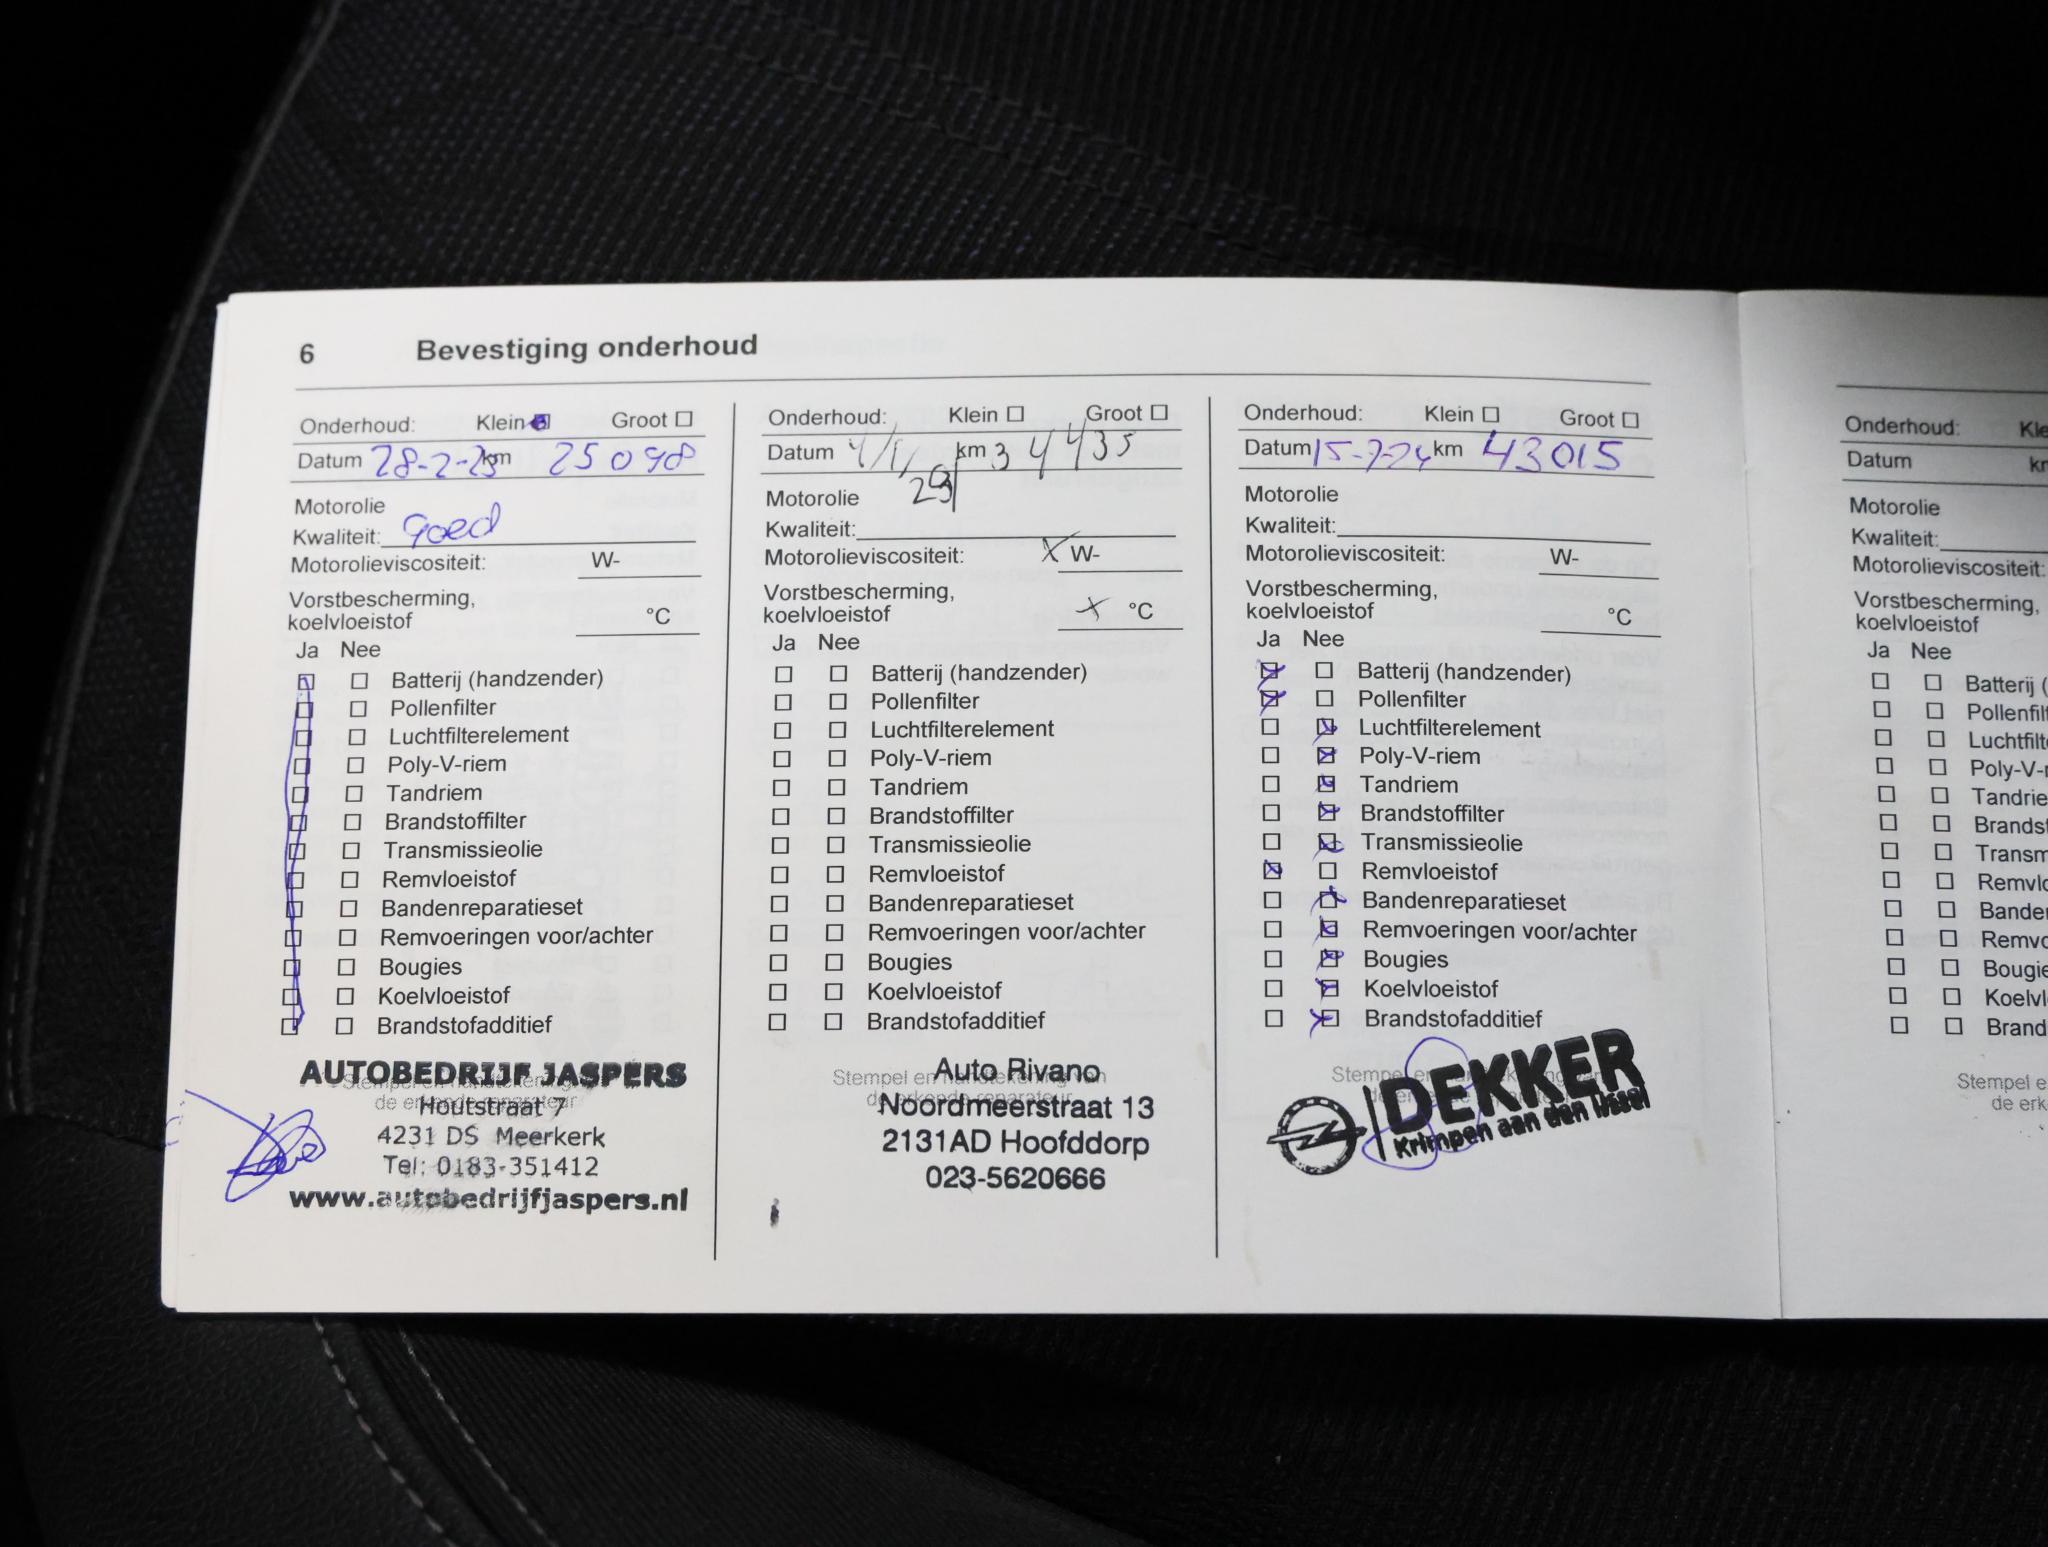 6 Bevestiging onderhoud
Onderhoud: Klein Groot
Datum 28-2-23 km 25098
Motorolie
Kwaliteit: goed
Motorolieviscositeit: W-
Vorstbescherming,
koelvloeistof °C
Ja Nee
Batterij (handzender)
Pollenfilter
Luchtfilterelement
Poly-V-riem
Tandriem
Brandstoffilter
Transmissieolie
Remvloeistof
Bandenreparatieset
Remvoeringen voor/achter
Bougies
Koelvloeistof
Brandstofadditief
Stempel en handtekening van
de erkende reparateur
AUTOBEDRIJF JASPERS
Houtstraat 7
4231 DS Meerkerk
Tel: 0183-351412
www.autobedrijfjaspers.nl
Onderhoud: Klein Groot
Datum km 34435
Motorolie
Kwaliteit:
Motorolieviscositeit: X W-
Vorstbescherming,
koelvloeistof X °C
Ja Nee
Batterij (handzender)
Pollenfilter
Luchtfilterelement
Poly-V-riem
Tandriem
Brandstoffilter
Transmissieolie
Remvloeistof
Bandenreparatieset
Remvoeringen voor/achter
Bougies
Koelvloeistof
Brandstofadditief
Stempel en handtekening van
de erkende reparateur
Auto Rivano
Noordmeerstraat 13
2131AD Hoofddorp
023-5620666
Onderhoud: Klein Groot
Datum 15-7-24 km 43015
Motorolie
Kwaliteit:
Motorolieviscositeit: W-
Vorstbescherming,
koelvloeistof °C
Ja Nee
Batterij (handzender)
Pollenfilter
Luchtfilterelement
Poly-V-riem
Tandriem
Brandstoffilter
Transmissieolie
Remvloeistof
Bandenreparatieset
Remvoeringen voor/achter
Bougies
Koelvloeistof
Brandstofadditief
Stempel en handtekening van
de erkende reparateur
DEKKER
Krimpen aan den IJssel
Onderhoud: Kle
Datum km
Motorolie
Kwaliteit:
Motorolieviscositeit:
Vorstbescherming,
koelvloeistof
Ja Nee
Batterij (
Pollenfilt
Luchtfilte
Poly-V-r
Tandrie
Brandst
Transm
Remvlo
Banden
Remvo
Bougie
Koelvl
Brand
Stempel e
de erk